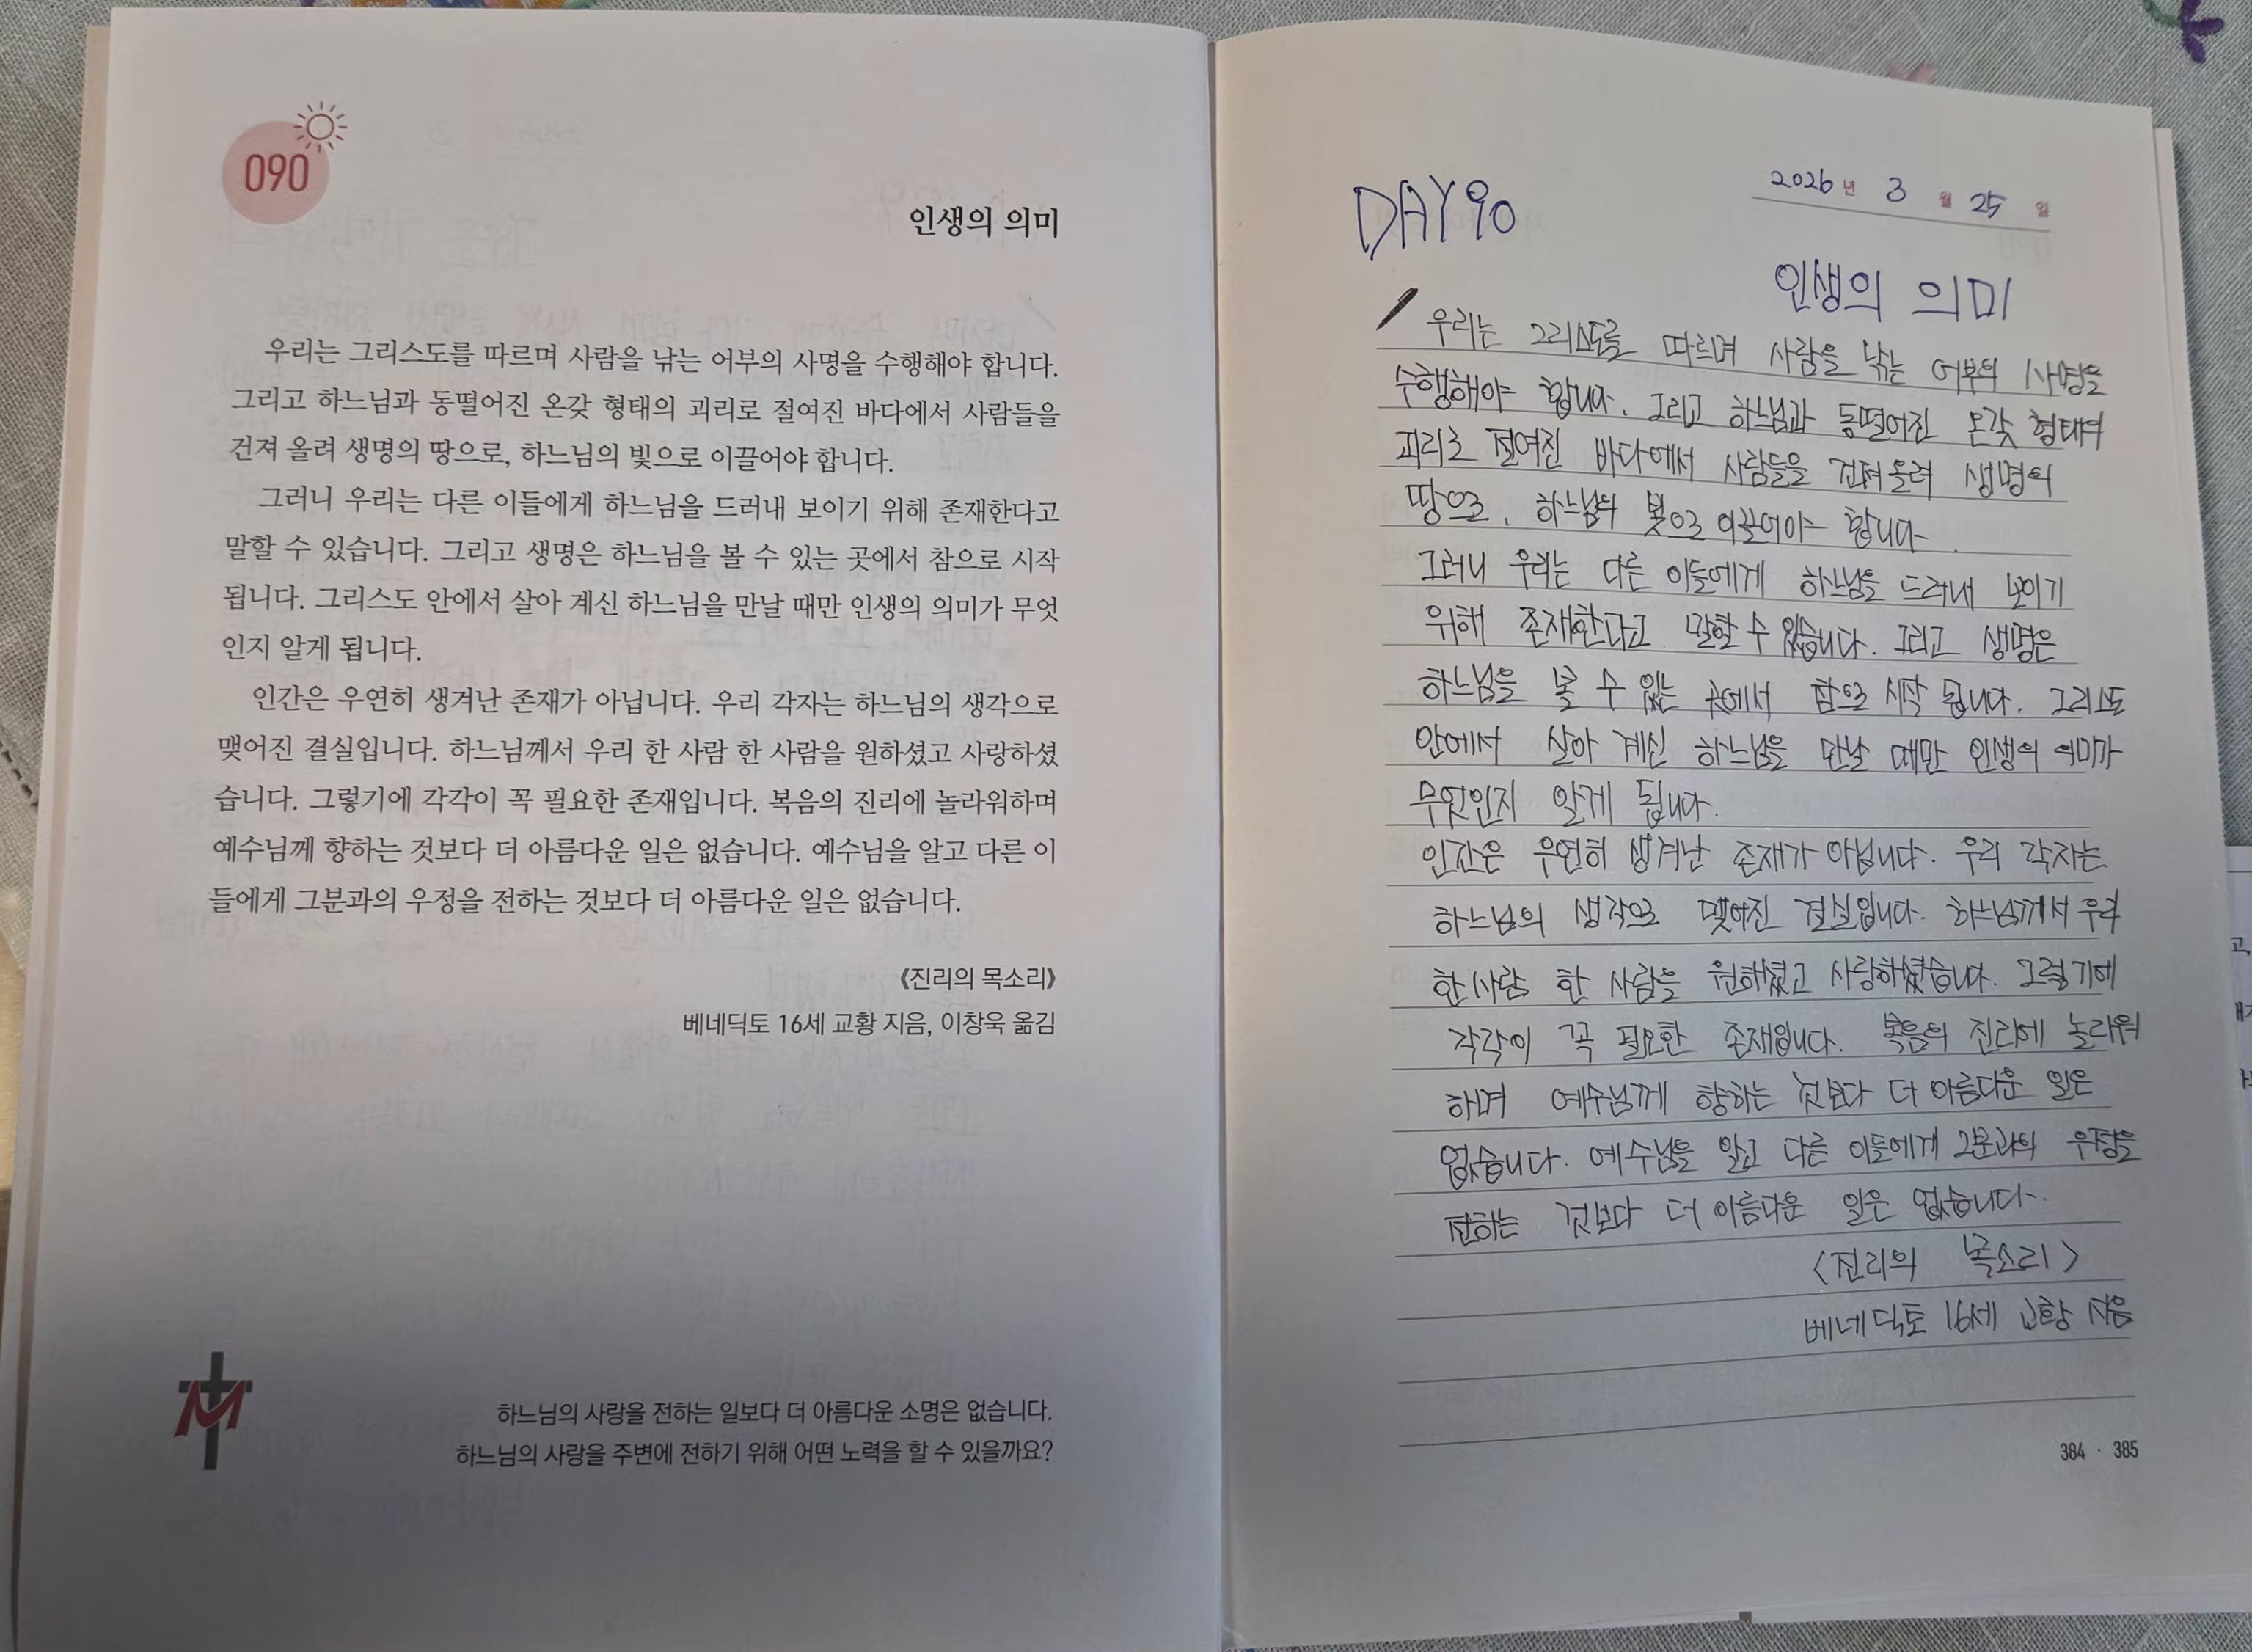 090
인생의 의미
우리는 그리스도를 따르며 사람을 낚는 어부의 사명을 수행해야 합니다.
그리고 하느님과 동떨어진 온갖 형태의 괴리로 절여진 바다에서 사람들을
건져 올려 생명의 땅으로, 하느님의 빛으로 이끌어야 합니다.
그러니 우리는 다른 이들에게 하느님을 드러내 보이기 위해 존재한다고
말할 수 있습니다. 그리고 생명은 하느님을 볼 수 있는 곳에서 참으로 시작
됩니다. 그리스도 안에서 살아 계신 하느님을 만날 때만 인생의 의미가 무엇
인지 알게 됩니다.
인간은 우연히 생겨난 존재가 아닙니다. 우리 각자는 하느님의 생각으로
맺어진 결실입니다. 하느님께서 우리 한 사람 한 사람을 원하셨고 사랑하셨
습니다. 그렇기에 각각이 꼭 필요한 존재입니다. 복음의 진리에 놀라워하며
예수님께 향하는 것보다 더 아름다운 일은 없습니다. 예수님을 알고 다른 이
들에게 그분과의 우정을 전하는 것보다 더 아름다운 일은 없습니다.
《진리의 목소리》
베네딕토 16세 교황 지음, 이창욱 옮김
M
하느님의 사랑을 전하는 일보다 더 아름다운 소명은 없습니다.
하느님의 사랑을 주변에 전하기 위해 어떤 노력을 할 수 있을까요?
2026년 3월 25일
DAY 90
인생의 의미
우리는 그리스도를 따르며 사람을 낚는 어부의 사명을
수행해야 합니다. 그리고 하느님과 동떨어진 온갖 형태의
괴리로 절여진 바다에서 사람들을 건져 올려 생명의
땅으로, 하느님의 빛으로 이끌어야 합니다.
그러니 우리는 다른 이들에게 하느님을 드러내 보이기
위해 존재한다고 말할 수 있습니다. 그리고 생명은
하느님을 볼 수 있는 곳에서 참으로 시작 됩니다. 그리스도
안에서 살아 계신 하느님을 만날 때만 인생의 의미가
무엇인지 알게 됩니다.
인간은 우연히 생겨난 존재가 아닙니다. 우리 각자는
하느님의 생각으로 맺어진 결실입니다. 하느님께서 우리
한 사람 한 사람을 원하셨고 사랑하셨습니다. 그렇기에
각각이 꼭 필요한 존재입니다. 복음의 진리에 놀라워
하며 예수님께 향하는 것보다 더 아름다운 일은
없습니다. 예수님을 알고 다른 이들에게 그분과의 우정을
전하는 것보다 더 아름다운 일은 없습니다.
<진리의 목소리>
베네딕토 16세 교황 지음
384 · 385